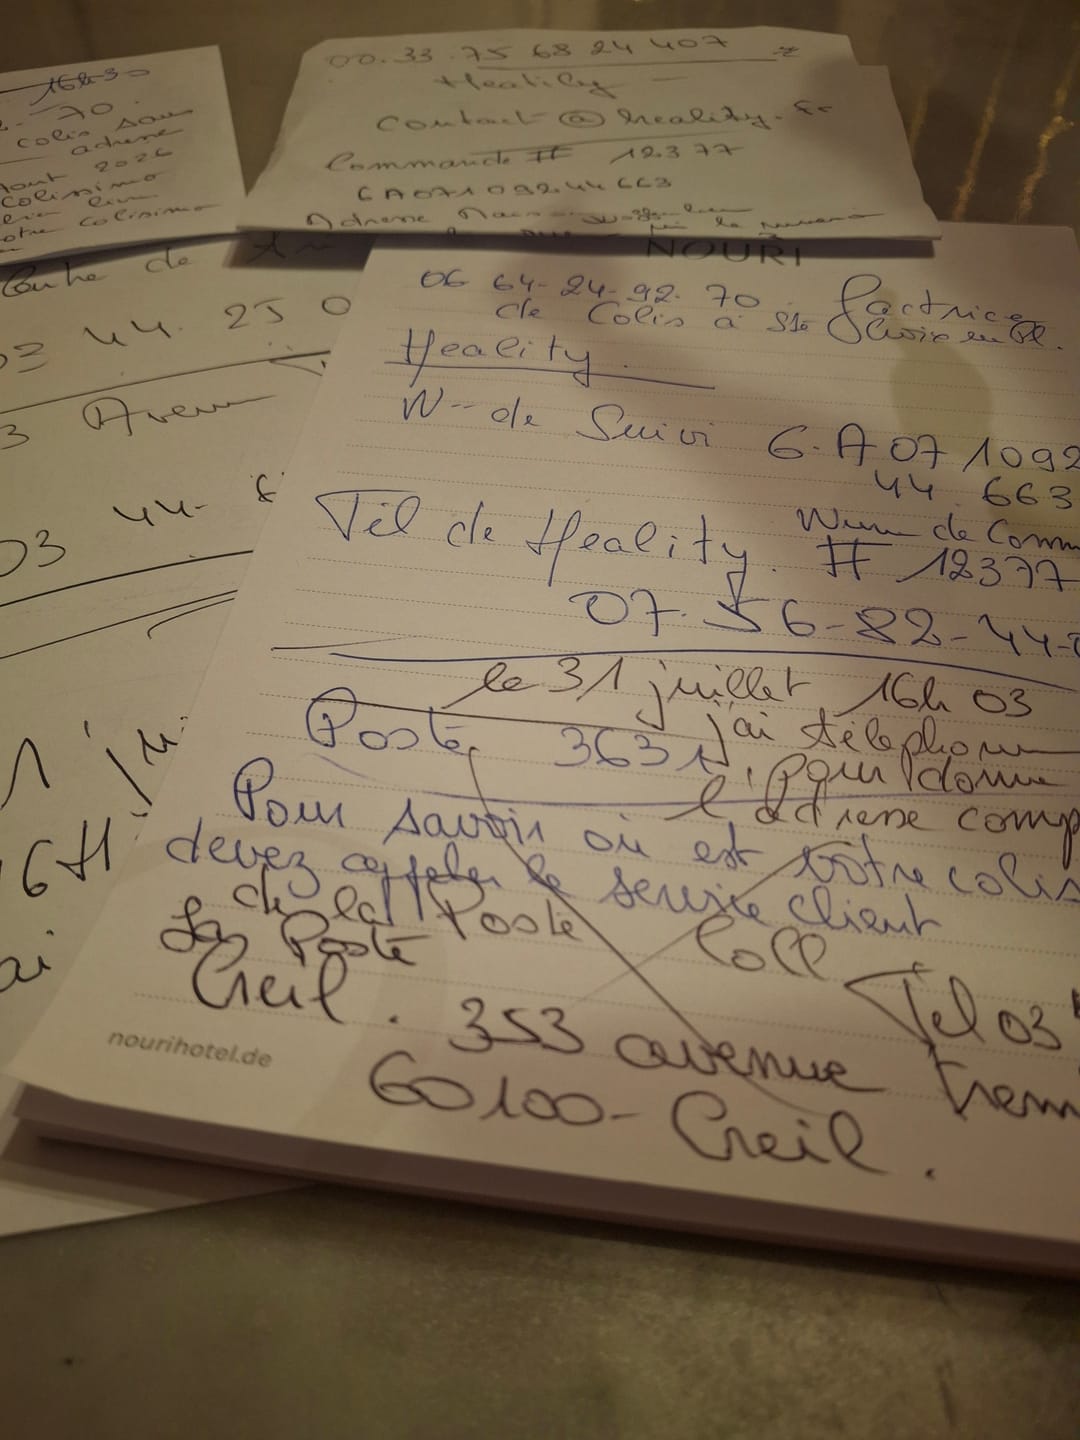 00.33.75 68 24 407
Heality
Contact@heality.fr
Commande # 12377
6A07109244663
Adresse
16h30
70
colis sans
adresse
2026
colissimo
colissimo
de
44. 25 0
3 Aven
03 44.
16H
ai
NOURI
06 64-24-92-70. factrice
de Colis à Ste
Heality.
N-- de Suivi 6.A07 1092
44 663
Tél de Heality. Num de Comm
# 12377
07-56-82-44-
le 31 juillet 16h 03
Poste, 3631, j'ai téléphon
pour donne
l'adresse comp
Pour savoir où est votre colis
devez appeler le service client
de la Poste
La Poste
Coll
Creil. Tel 03
353 avenue
60100- Creil.
nourihotel.de